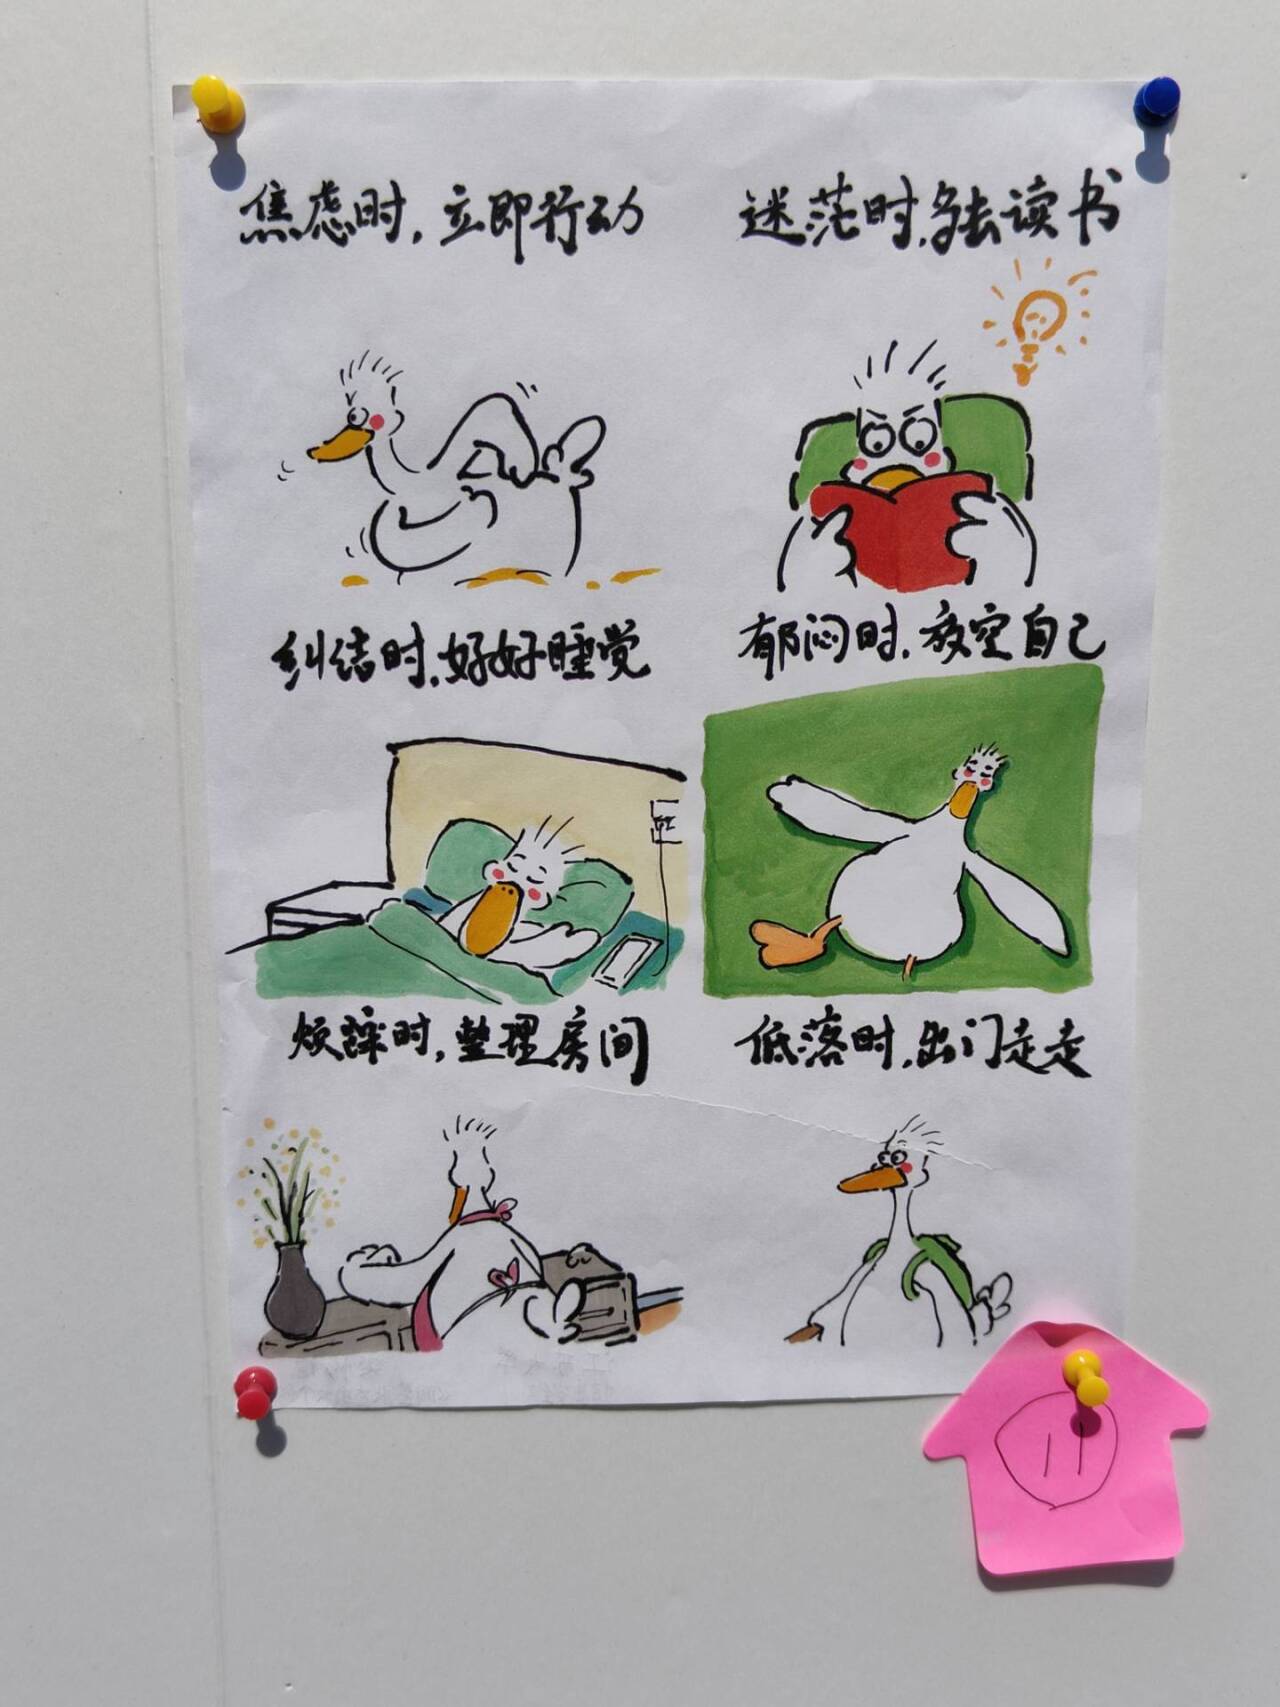 焦虑时,立即行动
迷茫时,多去读书
纠结时,好好睡觉
郁闷时,放空自己
烦躁时,整理房间
低落时,出门走走
11